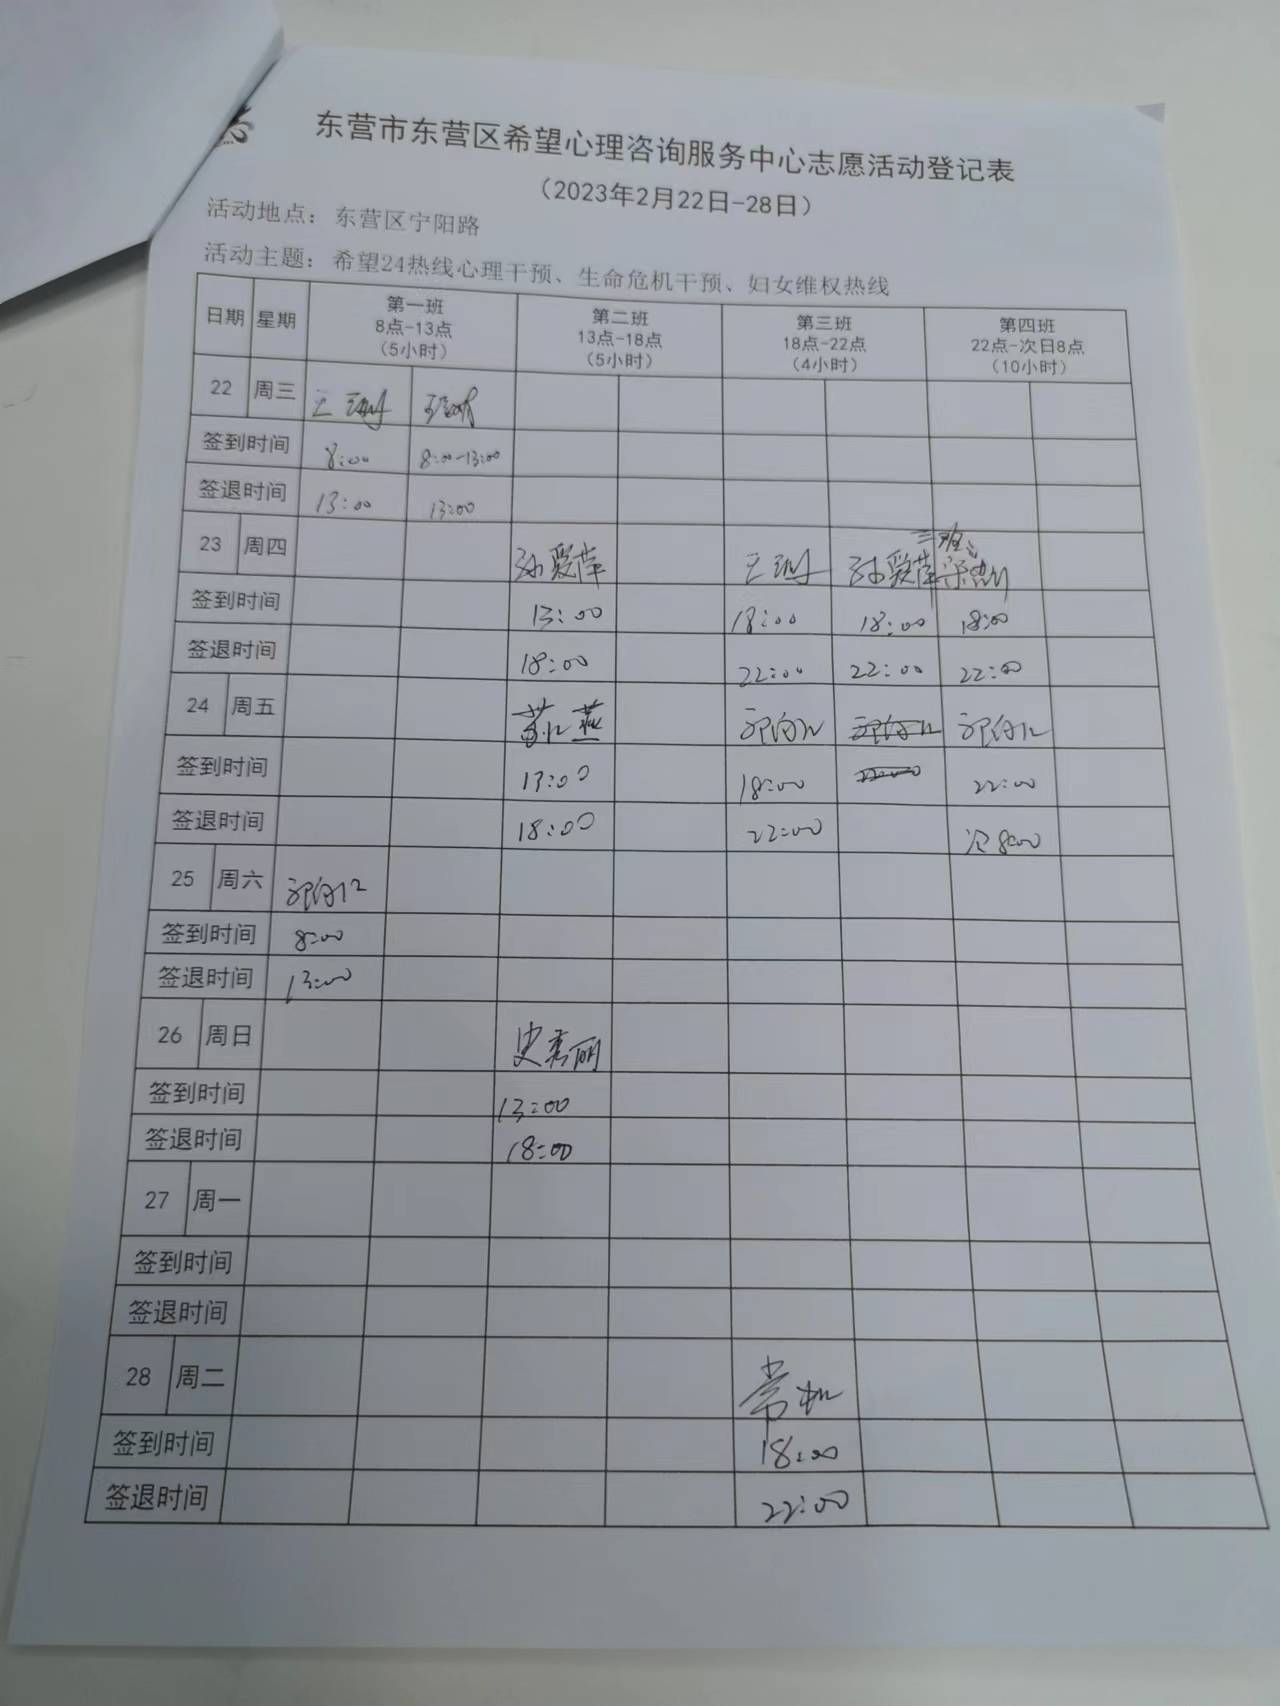 东营市东营区希望心理咨询服务中心志愿活动登记表
（2023年2月22日-28日）
活动地点：东营区宁阳路
活动主题：希望24热线心理干预、生命危机干预、妇女维权热线
日期 星期 第一班 8点-13点 （5小时） 第二班 13点-18点 （5小时） 第三班 18点-22点 （4小时） 第四班 22点-次日8点 （10小时）
22 周三
签到时间 8:00 8:00-13:00
签退时间 13:00 13:00
三班
23 周四 孙爱萍 孙爱萍
签到时间 13:00 18:00 18:00 18:00
签退时间 18:00 22:00 22:00 22:00
24 周五
签到时间 13:00 18:00 22:00
签退时间 18:00 22:00 次8:00
25 周六
签到时间 8:00
签退时间 13:00
26 周日 史秀丽
签到时间 13:00
签退时间 18:00
27 周一
签到时间
签退时间
28 周二
签到时间 18:00
签退时间 22:00